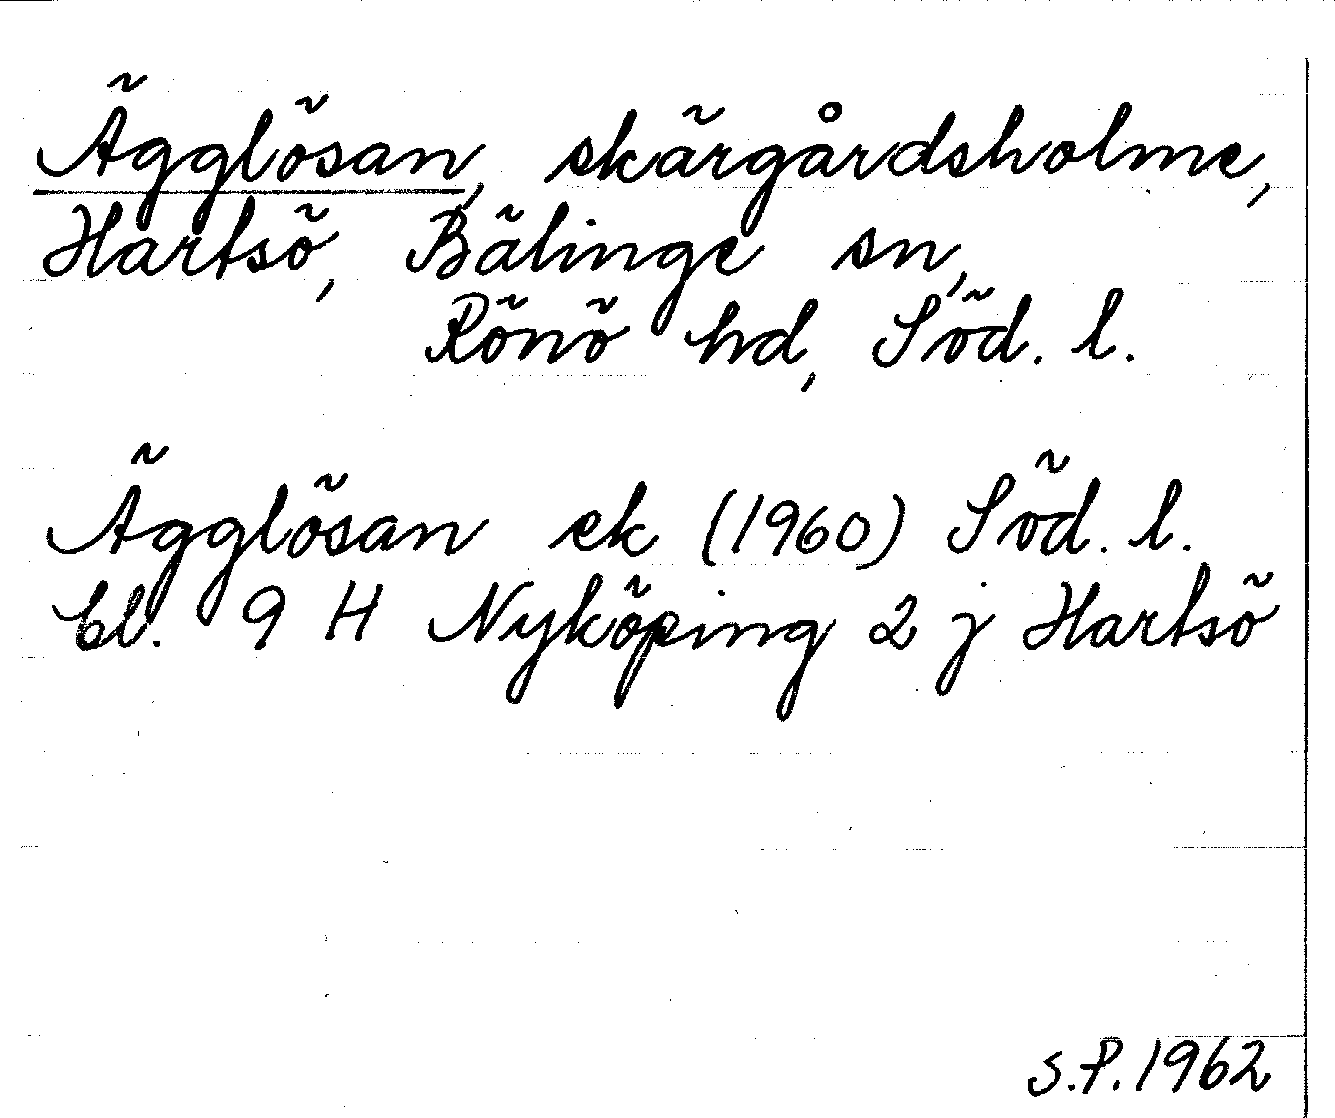 Ägglösan, skärgårdsholme,
Hartsö, Bälinge sn,
Rönö hd, Söd. l.
Ägglösan ek (1960) Söd. l.
bl. 9 H Nyköping 2 j Hartsö
S.P. 1962